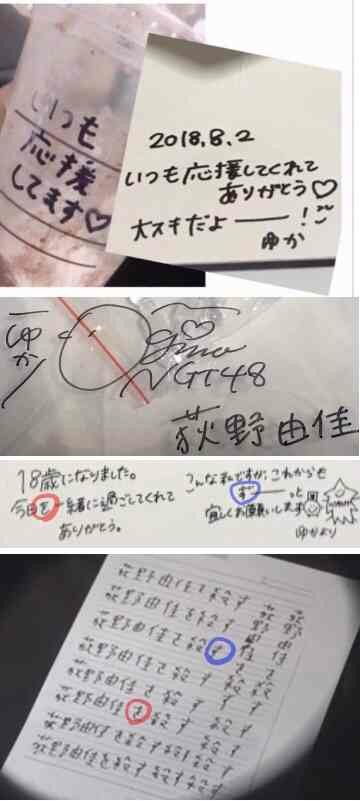 いつも
応援
してます♡
2018.8.2
いつも応援してくれて
ありがとう♡
大スキだよ――!
ゆか
ゆか
NGT48
荻野由佳
18歳になりました。
今日を一緒に過ごしてくれて
ありがとう。
こんな私ですが、これからも
ず――っと
宜しくお願いします
ゆかより
荻野由佳を殺す
荻野由佳を殺す
荻野由佳を殺す
荻野由佳を殺す
荻野由佳を殺す
荻野由佳を殺す
荻野由佳を殺す
荻野由佳を殺す